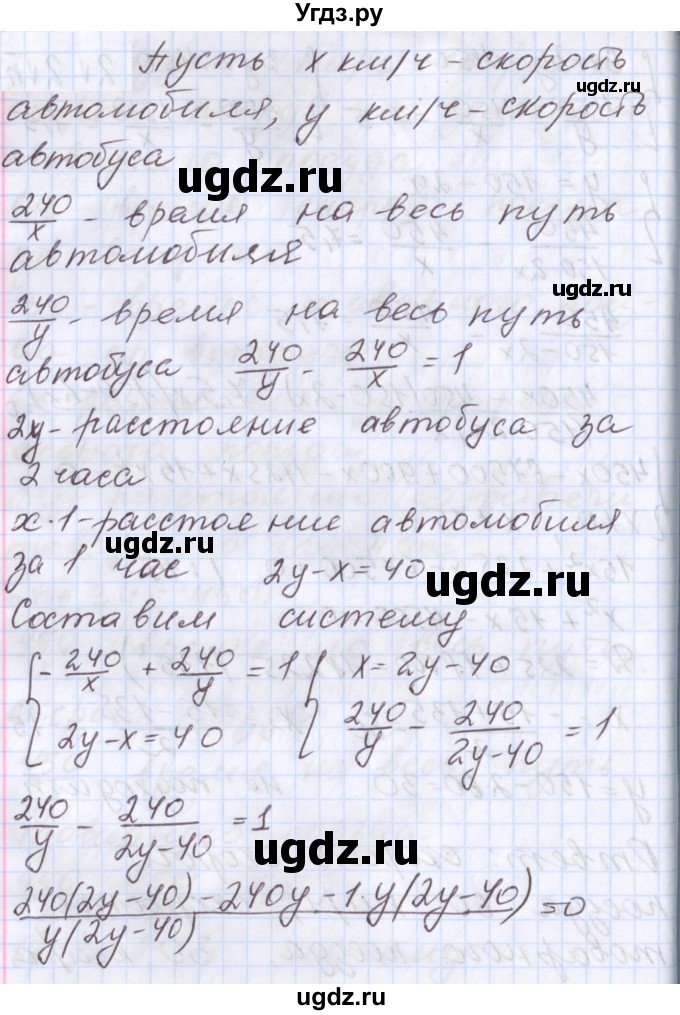 Угдз.ру
Пусть x км/ч - скорость
ugdz.ru
автомобиля, y км/ч - скорость
автобуса
ugdz.ru
ugdz.ru
240/x - время на весь путь
автомобиля
ugdz.ru
240/y - время на весь путь
автобуса 240/y - 240/x = 1
2y - расстояние автобуса за
2 часа
ugdz.ru
x·1 - расстояние автомобиля
за 1 час 2y - x = 40
ugdz.ru
Составим систему
{ - 240/x + 240/y = 1 { x = 2y - 40
2y - x = 40 240/y - 240/(2y - 40) = 1
240/y - 240/(2y - 40) = 1
ugdz.ru
ugdz.ru
(240(2y - 40) - 240y - 1·y(2y - 40))/(y(2y - 40)) = 0
ugdz.ru